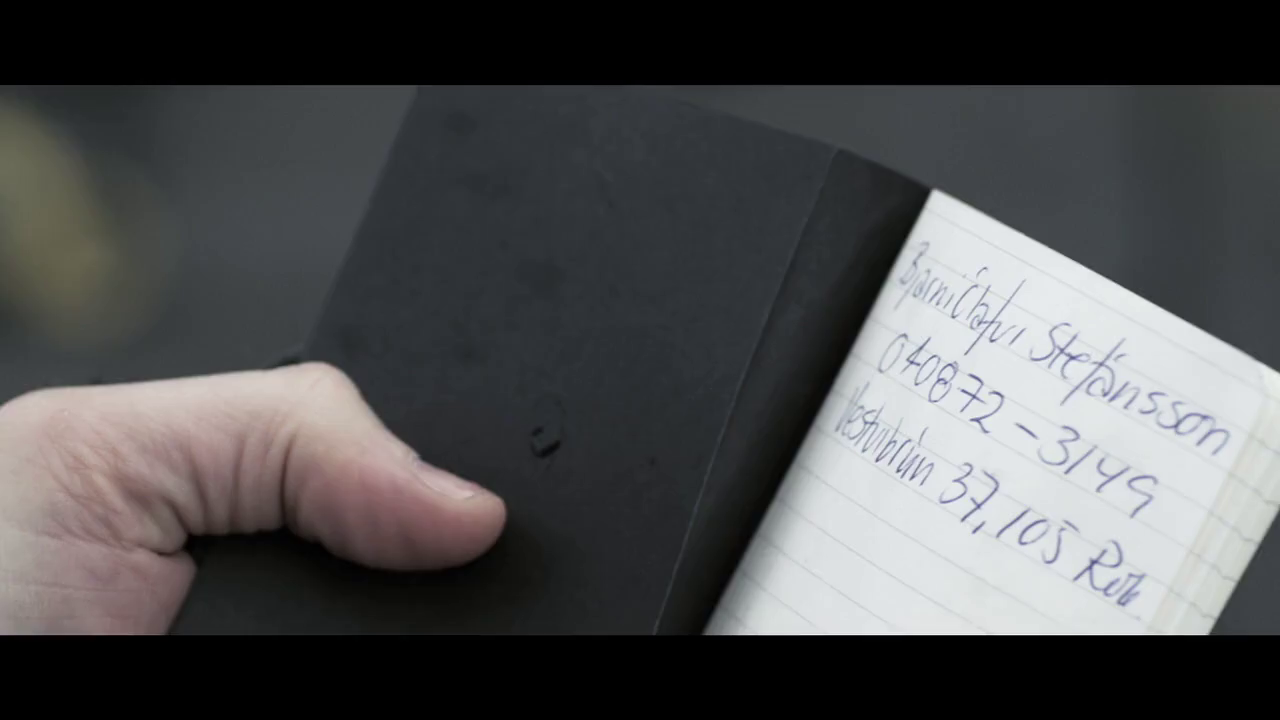 Bjarni Ólafur Stefánsson
040872-3149
Vesturbrún 37, 105 Rvk